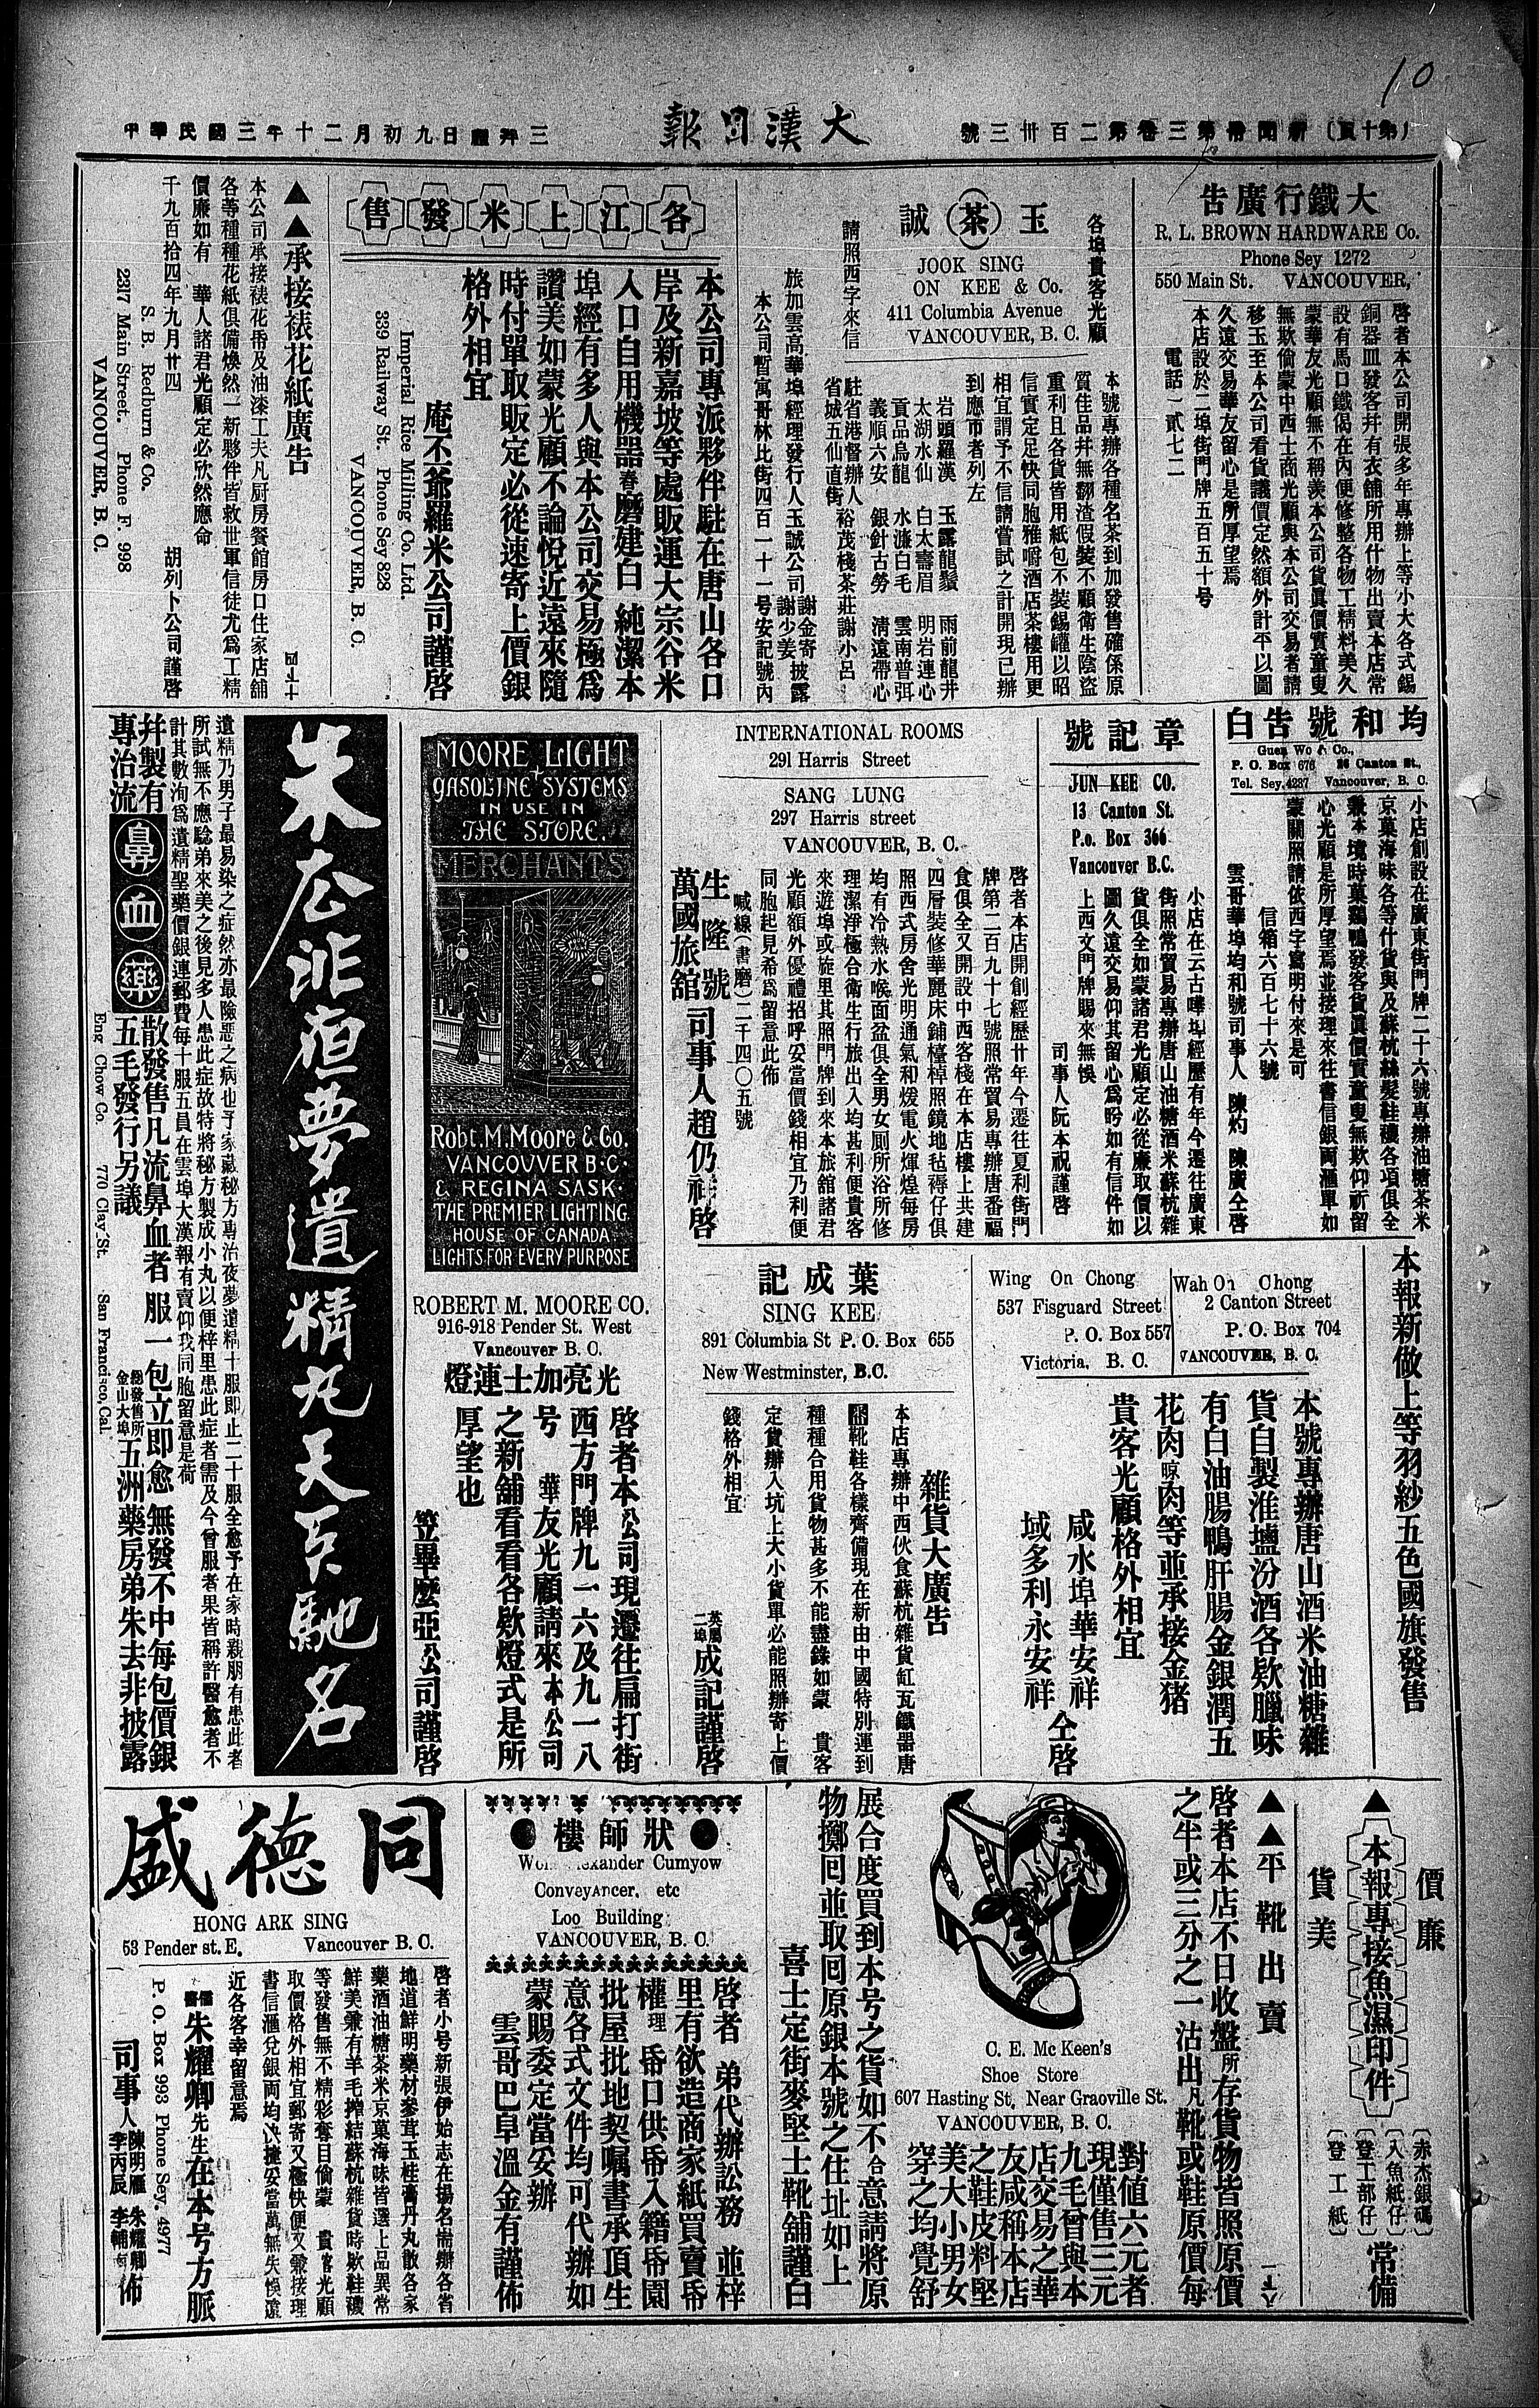 10
(第十頁) 新聞冊第三卷第二百卅三號
大漢日報
中華民國三年十二月初九日禮拜三
大鐵行廣告
R. L. BROWN HARDWARE Co.
Phone Sey 1272
550 Main St. VANCOUVER,
啓者本公司開張多年專辦上等小大各式錫
銅器皿發客幷有衣舖所用什物出賣本店常
設有馬口鐵偈在內便修整各物工精料美久
蒙華友光顧無不稱羨本公司貨眞價實童叟
無欺倘蒙中西士商光顧與本公司交易者請
移玉至本公司看貨議價定然額外計平以圖
久遠交易華友留心是所厚望焉
本店設於二埠街門牌五百五十号
電話一貳七二
各埠貴客光顧
玉茶誠
請照西字來信
JOOK SING
ON KEE & Co.
411 Columbia Avenue
VANCOUVER, B. C.
本號專辦各種名茶到加發售確係原
質佳品幷無翻渣假裝不顧衛生陰盜
重利且各貨皆用紙包不裝錫罐以昭
信實定足快同胞雅嚼酒店茶樓用更
相宜謂予不信請嘗試之計開現已辦
到應市者列左
岩頭羅漢 玉露龍鬚 雨前龍井
太湖水仙 白太壽眉 明岩連心
貢品烏龍 水濂白毛 雲南普弭
義順六安 銀針古勞 淸遠帶心
駐省港督辦人
省城五仙直街 裕茂棧茶莊謝小呂
旅加雲高華埠經理發行人玉誠公司 謝金寄 謝少姜 披露
本公司暫寓哥林比街四百一十一号安記號內
各江上米發售
本公司專派夥伴駐在唐山各口
岸及新嘉坡等處販運大宗谷米
人口自用機器舂磨建白純潔本
埠經有多人與本公司交易極爲
讚美如蒙光顧不論悅近遠來隨
時付單取販定必從速寄上價銀
格外相宜
庵丕爺羅米公司謹啓
Imperial Rice Milling Co. Ltd.
339 Railway St. Phone Sey 828
VANCOUVER, B. C.
▲▲承接裱花紙廣告
本公司承接裱花帋及油漆工夫凡厨房餐館房口住家店舖
各等種種花紙俱備煥然一新夥伴皆救世軍信徒尤爲工精
價廉如有 華人諸君光顧定必欣然應命
千九百拾四年九月廿四 胡列卜公司謹啓
S. B. Redburn & Co.
2317 Main Street. Phone F. 998
VANCOUVER, B. C.
均和號告白
Guen Wo & Co.,
P. O. Box 676 26 Canton St.,
Tel. Sey. 4237 Vancouver, B. C.
小店創設在廣東街門牌二十六號專辦油糖茶米
京菓海味各等什貨與及蘇杭絲髮鞋襪各項俱全
兼本境時菓鷄鴨發客貨眞價實童叟無欺仰祈留
心光顧是所厚望焉並接理來往書信銀両滙單如
蒙關照請依西字寫明付來是可
信箱六百七十六號
雲哥華埠均和號司事人 陳灼 陳廣仝啓
章記號
JUN KEE CO.
13 Canton St.
P.o. Box 366
Vancouver B.C.
小店在云古嘩埠經歷有年今遷往廣東
街照常貿易專辦唐山油糖酒米蘇杭雜
貨俱全如蒙諸君光顧定必從廉取價以
圖久遠交易仰其留心爲盼如有信件如
上西文門牌賜來無悞
司事人阮本祝謹啓
INTERNATIONAL ROOMS
291 Harris Street
SANG LUNG
297 Harris street
VANCOUVER, B. C.
啓者本店開創經歷廿年今遷往夏利街門
牌第二百九十七號照常貿易專辦唐番福
食俱全又開設中西客棧在本店樓上共建
四層裝修華麗床鋪檯棹照鏡地毡褥仔俱
照西式房舍光明通氣和煖電火煇煌每房
均有冷熱水喉面盆俱全男女厠所浴所修
理潔淨極合衛生行旅出入均甚利便貴客
來遊埠或旋里其照門牌到來本旅舘諸君
光顧額外優禮招呼妥當價錢相宜乃利便
同胞起見希爲留意此佈
喊線(書磨)二千四〇五號
生隆號
萬國旅舘 司事人趙仍祥啓
MOORE LIGHT
GASOLINE SYSTEMS
IN USE IN
THE STORE.
MERCHANTS
Robt. M. Moore & Co.
VANCOUVER B·C·
& REGINA SASK·
THE PREMIER LIGHTING
HOUSE OF CANADA
LIGHTS FOR EVERY PURPOSE
ROBERT M. MOORE CO.
916-918 Pender St. West
Vancouver B. C.
光亮加士連燈
啓者本公司現遷往扁打街
西方門牌九一六及九一八
号 華友光顧請來本公司
之新舖看看各欵燈式是所
厚望也
笠畢麼亞公司謹啓
朱広泚祖夢遺精丸天下馳名
遺精乃男子最易染之症然亦最險惡之病也予家藏秘方專治夜夢遺精十服即止二十服全愈予在家時親朋有患此者
所試無不應騐弟來美之後見多人患此症故特將秘方製成小丸以便梓里患此症者需及今曾服者果皆稱許醫愈者不
計其數洵爲遺精聖藥價銀連郵費每十服五員在雲埠大漢報有賣仰我同胞留意是荷
幷製有
專治流 鼻血藥 散發售凡流鼻血者服一包立即愈無發不中每包價銀
五毛發行另議 總發售所 金山大埠 五洲藥房弟朱去非披露
Eng Chow Co. 770 Clay St. San Francisco, Cal.
本報新做上等羽紗五色國旗發售
Wah On Chong
2 Canton Street
P. O. Box 704
VANCOUVER, B. C.
Wing On Chong
537 Fisguard Street
P. O. Box 557
Victoria, B. C.
本號專辦唐山酒米油糖雜
貨自製淮鹽汾酒各欵臘味
有白油腸鴨肝腸金銀潤五
花肉晾肉等並承接金猪
貴客光顧格外相宜
咸水埠華安祥
域多利永安祥 仝啓
葉成記
SING KEE
891 Columbia St P. O. Box 655
New Westminster, B.C.
雜貨大廣告
本店專辦中西伙食蘇杭雜貨缸瓦鐵器唐
靴鞋各樣齊備現在新由中國特別運到
種種合用貨物甚多不能盡錄如蒙 貴客
定貨辦入坑上大小貨單必能照辦寄上價
錢格外相宜
英屬二埠 成記謹啓
價廉
▲本報專接魚濕印件
貨美
(赤杰銀碼)
(入魚紙仔)
(登工部仔)
(登工紙)
常備
▲▲平靴出賣
啓者本店不日收盤所存貨物皆照原價
之半或三分之一沽出凡靴或鞋原價每
C. E. Mc Keen's
Shoe Store
607 Hasting St, Near Graoville St.
VANCOUVER, B. C.
對值六元者
現僅售三元
九毛曾與本
店交易之華
友咸稱本店
之鞋皮料堅
美大小男女
穿之均覺舒
展合度買到本号之貨如不合意請將原
物擲囘並取囘原銀本號之住址如上
喜士定街麥堅士靴舖謹白
狀師樓
Won Alexander Cumyow
Conveyancer, etc
Loo Building
VANCOUVER, B. C.
啓者 弟代辦訟務 並梓
里有欲造商家紙買賣帋
權理帋口供帋入籍帋園
批屋批地契嘱書承頂生
意各式文件均可代辦如
蒙賜委定當妥辦
雲哥巴阜溫金有謹佈
同德盛
HONG ARK SING
53 Pender st. E. Vancouver B. C.
啓者小号新張伊始志在揚名耑辦各省
地道鮮明藥材參茸玉桂膏丹丸散各家
藥酒油糖茶米京菓海味皆選上品異常
鮮美兼有羊毛搾結蘇杭雜貨時欵鞋襪
等發售無不精彩奪目倘蒙 貴客光顧
取價格外相宜郵寄又極快便又兼接理
書信滙兌銀両均快捷妥當萬無失悞遠
近各客幸留意焉
儒醫 朱耀卿先生在本号方脈
P. O. Box 993 Phone Sey. 4977
司事人 陳明雁 朱耀卿 李丙辰 李輔 佈